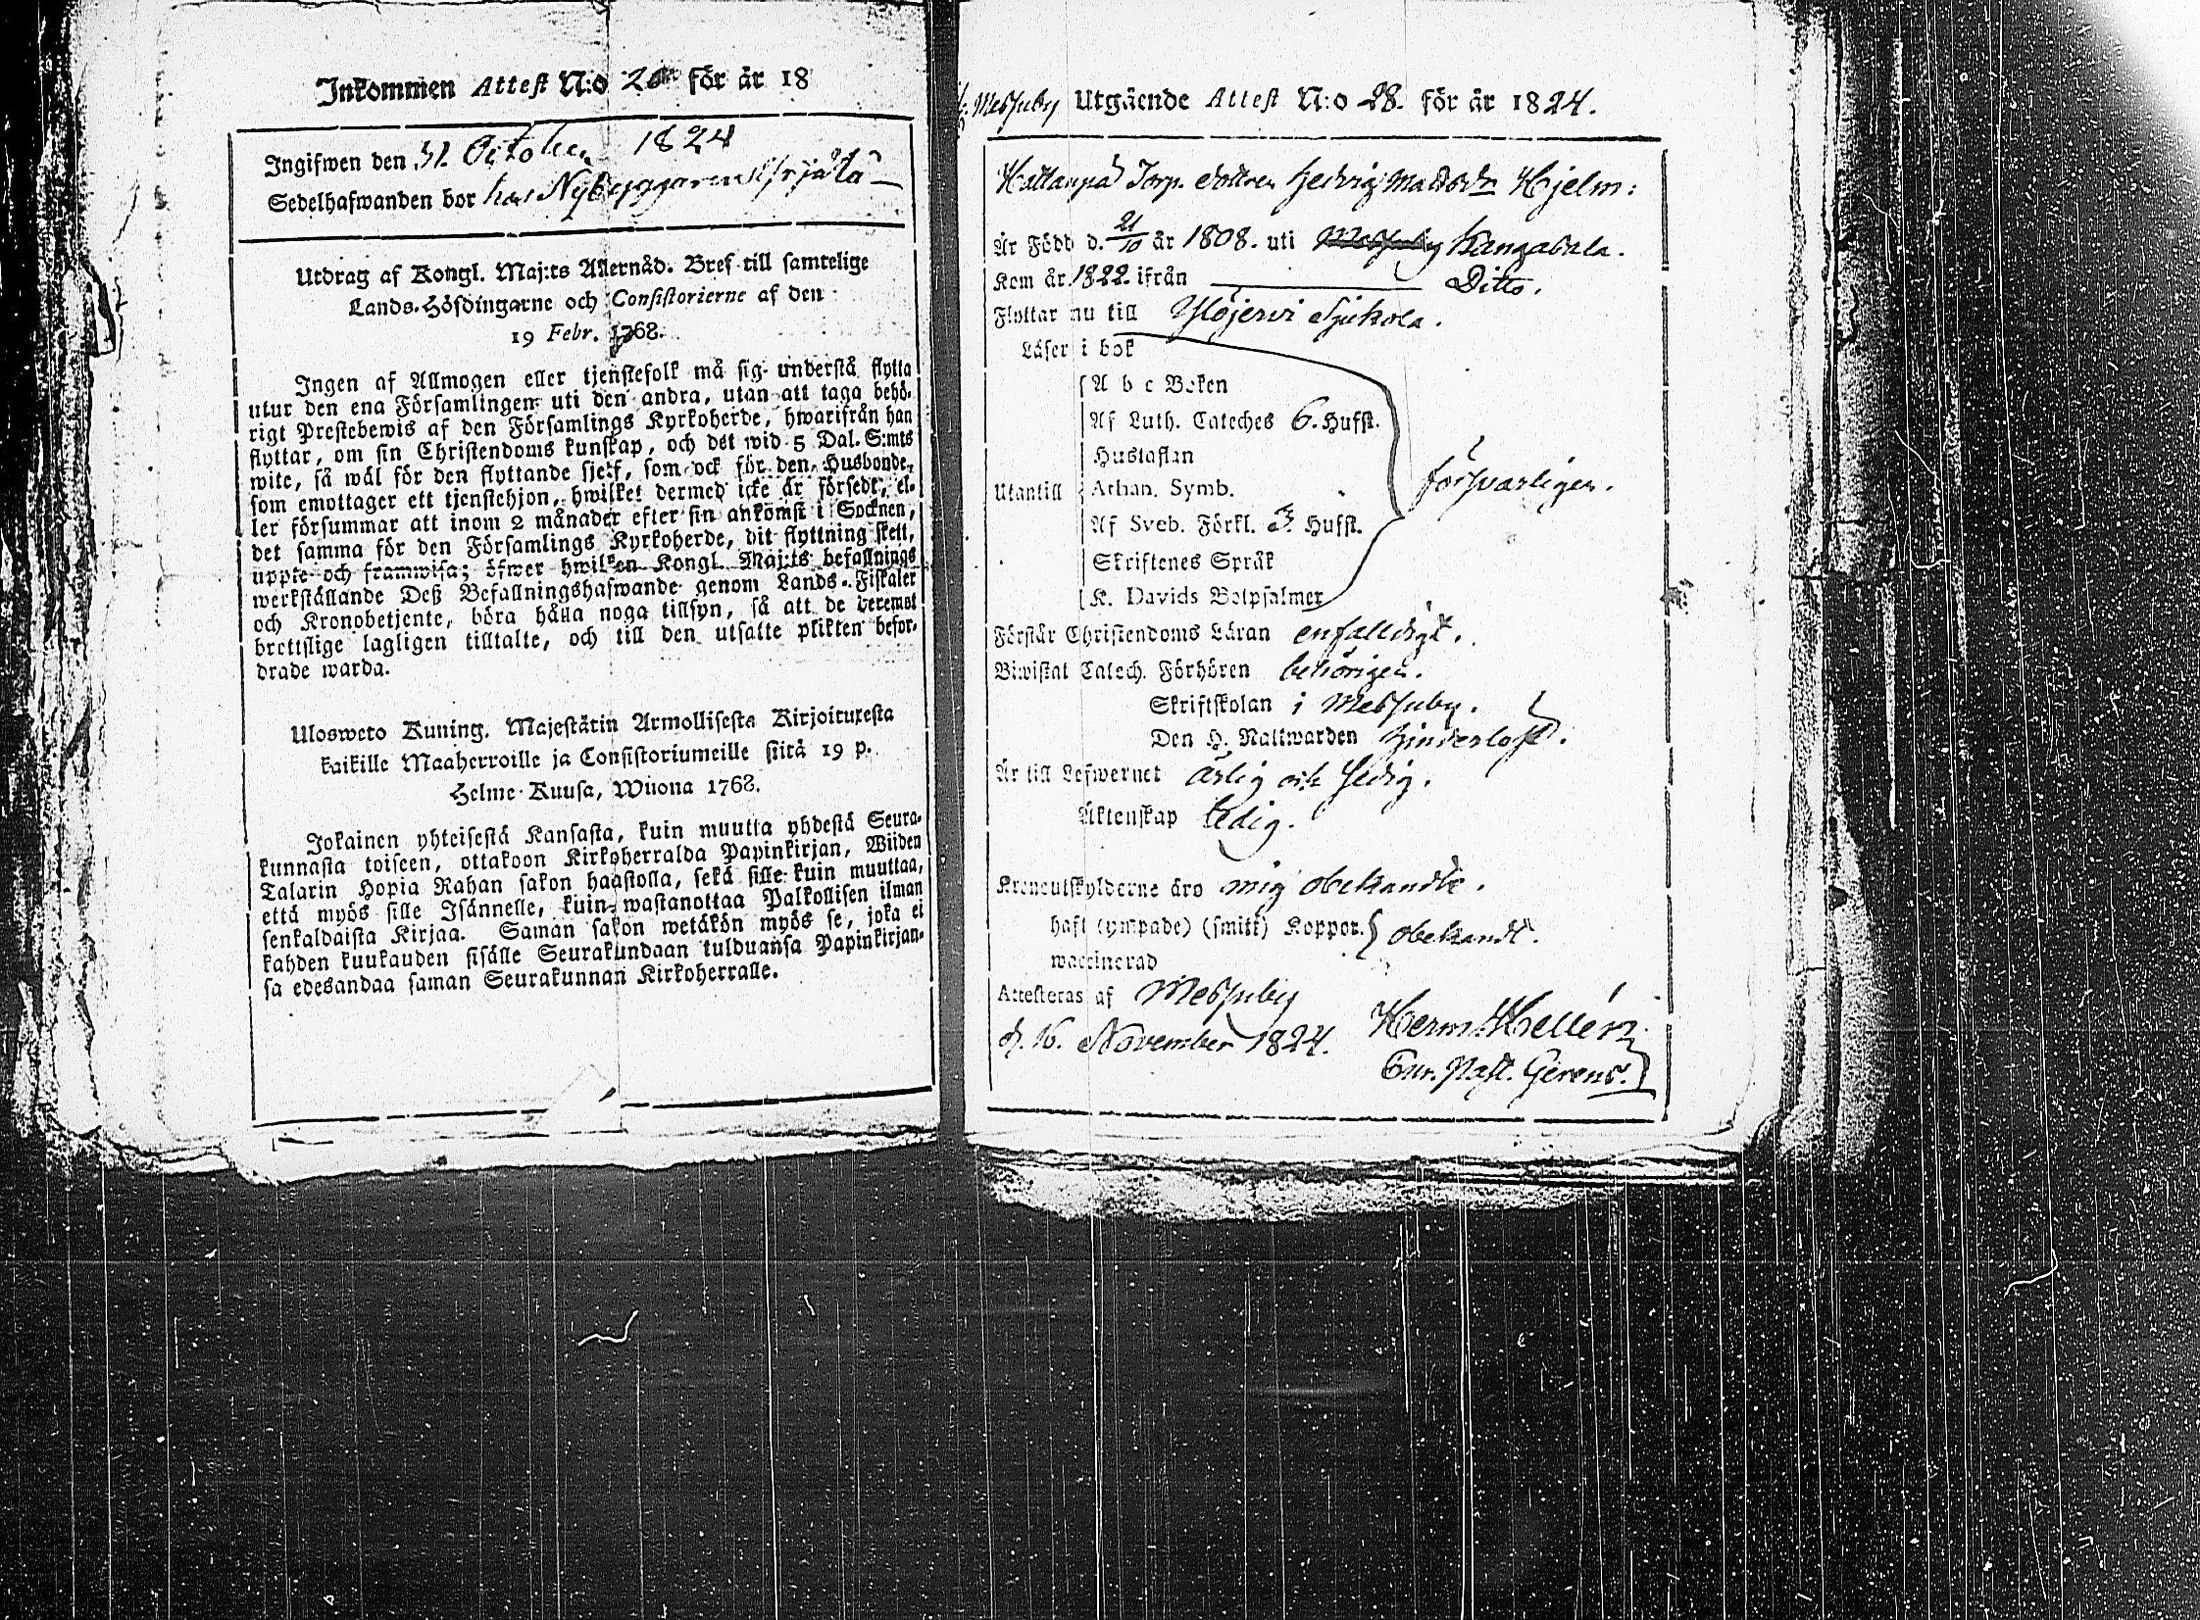 Inkommen Attest N:o 20 för år 18
Ingifwen den 31 October 1824
Sedelhafwanden bor hos Nybyggaren
Utdrag af Kongl. Maj:ts Allernåd. Bref till samtelige
Lands-Höfdingarne och Consistorierne af den
19 Febr. 1768.
Ingen af Allmogen eller tjenstefolk må sig understå flytta
utur den ena Församlingen uti den andra, utan att taga behö-
rigt Prestebewis af den Församlings Kyrkoherde, hwarifrån han
flyttar, om sin Christendoms kunskap, och det wid 5 Dal. S:mts
wite, så wäl för den flyttande sjelf, som ock för den Husbonde,
som emottager ett tjenstehjon, hwilket dermed icke är försedt, el-
ler försummar att inom 2 månader efter sin ankomst i Socknen,
det samma för den Församlings Kyrkoherde, dit flyttning skett,
uppte och framwisa; öfwer hwilken Kongl. Maj:ts befallnings
werkställande Deß Befallningshafwande genom Lands-Fiskaler
och Kronobetjente, böra hålla noga tillsyn, så att de deremot
brottslige lagligen tilltalte, och till den utsatte plikten befor-
drade warda.
Ulosweto Kuning. Majestätin Armollisesta Kirjoituxesta
kaikille Maaherroille ja Consistoriumeille siitä 19 p.
Helme-Kuusa, Wuona 1768.
Jokainen yhteisestä Kansasta, kuin muutta yhdestä Seura-
kunnasta toiseen, ottakoon Kirkoherralda Papinkirjan, Wiiden
Talarin Hopia Rahan sakon haastolla, sekä sille kuin muuttaa,
että myös sille Isännelle, kuin wastanottaa Palkollisen ilman
senkaldaista Kirjaa. Saman sakon wetäkön myös se, joka ei
kahden kuukauden sisälle Seurakundaan tulduansa Papinkirjan-
sa edesandaa saman Seurakunnan Kirkoherralle.
Messuby Utgående Attest N:o 28. för år 1824.
Torp. dottren Hedvig Matsdr Hjelm:
Är Född d. 21/10 år 1808. uti Messuby Kangasala.
Kom år 1822. ifrån Ditto.
Flyttar nu till Ylöjervi Sjukola.
Läser i bok
A b c Boken
Af Luth. Cateches 6. Hufst.
Hustaflan
Utantill Athan. Symb. försvarligen.
Af Sveb. Förkl. 3 Hufst.
Skriftenes Språk
K. Davids Botpsalmer
Förstår Christendoms Läran enfaldigt.
Biwistat Catech. Förhören behörigen.
Skriftskolan i Messuby.
Den H. Nattwarden hinderlöst.
Är till Lefwernet ärlig och sedig.
Äktenskap ledig.
Kronoutskylderne äro mig obekandte.
haft (ympade) (smitt) Koppor. } obekandt.
waccinerad
Attesteras af Messuby
d. 16. November 1824. Herm. Hellén
Cur. Past. Gerens.